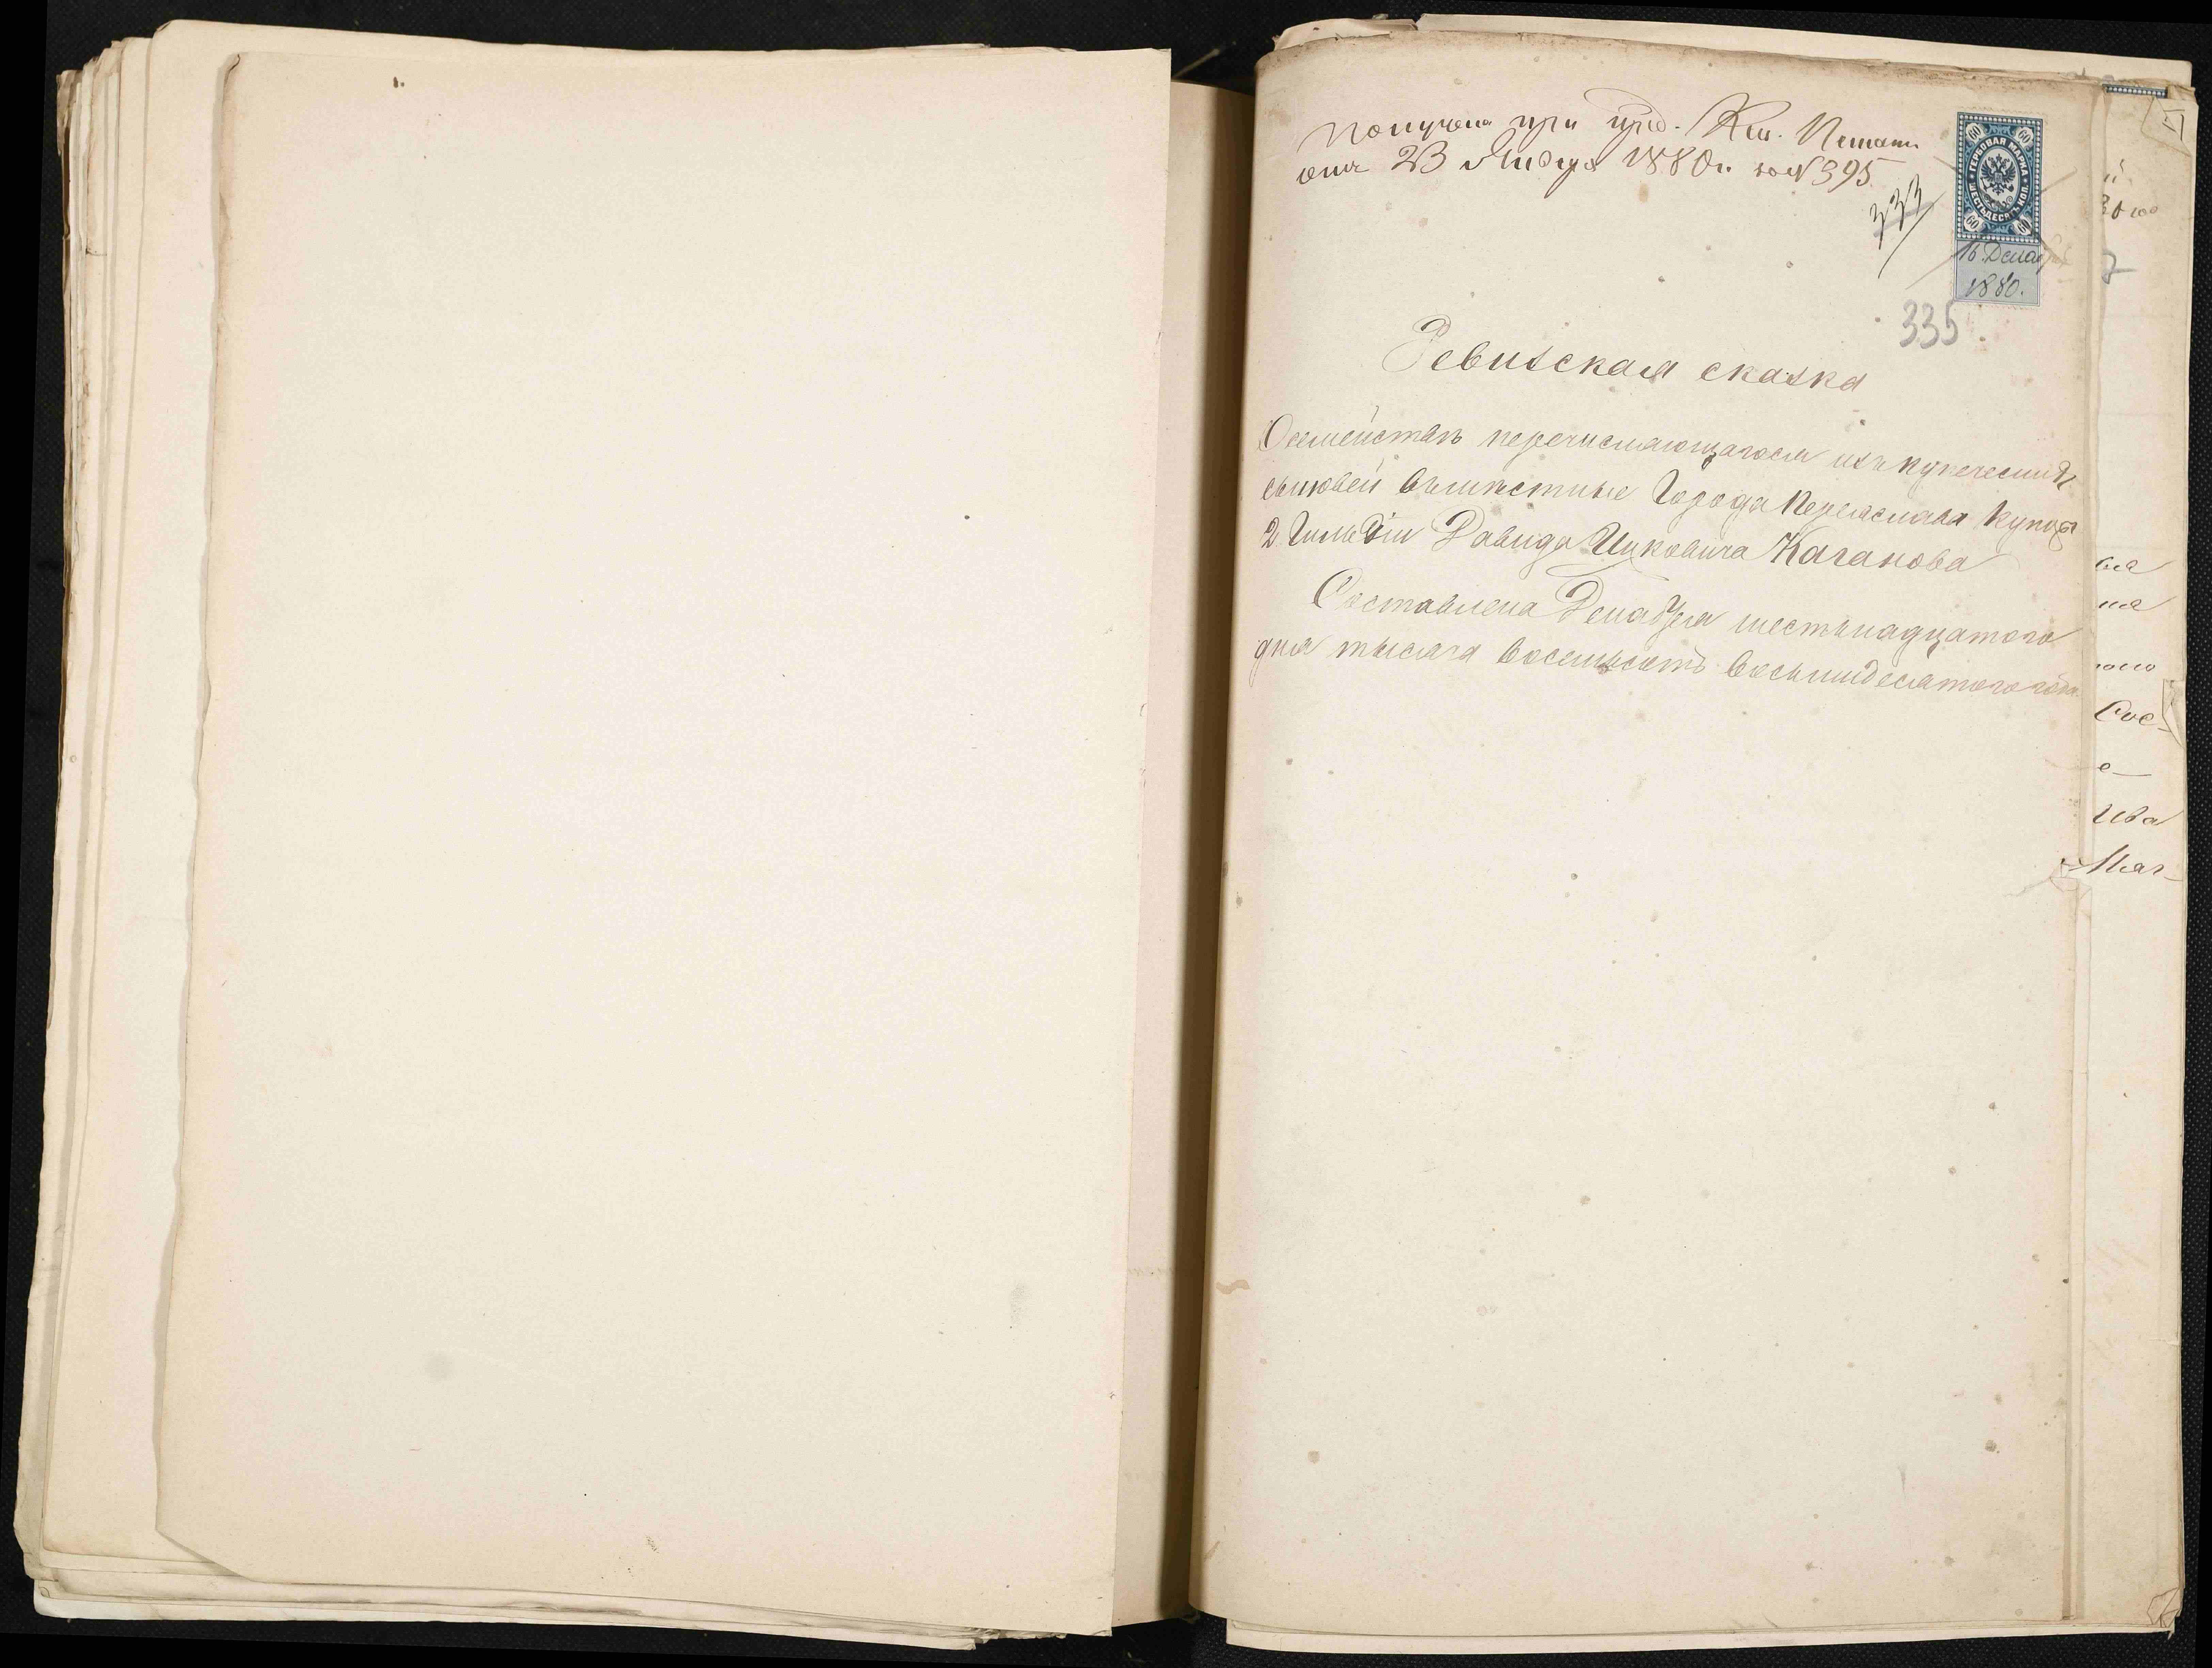 Получена при пред. Каз. Палаты
отъ 23 Января 1880 г. за № 395
333
60 60
ГЕРБОВАЯ МАРКА
ШЕСТЬДЕСЯТЪ КОП.
60 60
16 Декабря
1880.
335.
Ревизская сказка
О семействѣ перечисляющагося изъ купеческихъ
сыновей въ мѣстные Города Переяслава купцы
2 Гильдіи Давида Ицковича Каганова
Составлена Декабря шестьнадцатого
дня тысяча восемьсотъ восьмидесятого года.